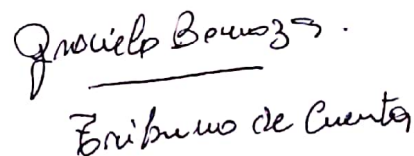 Graciela Barroza.
Tribuno de Cuenta